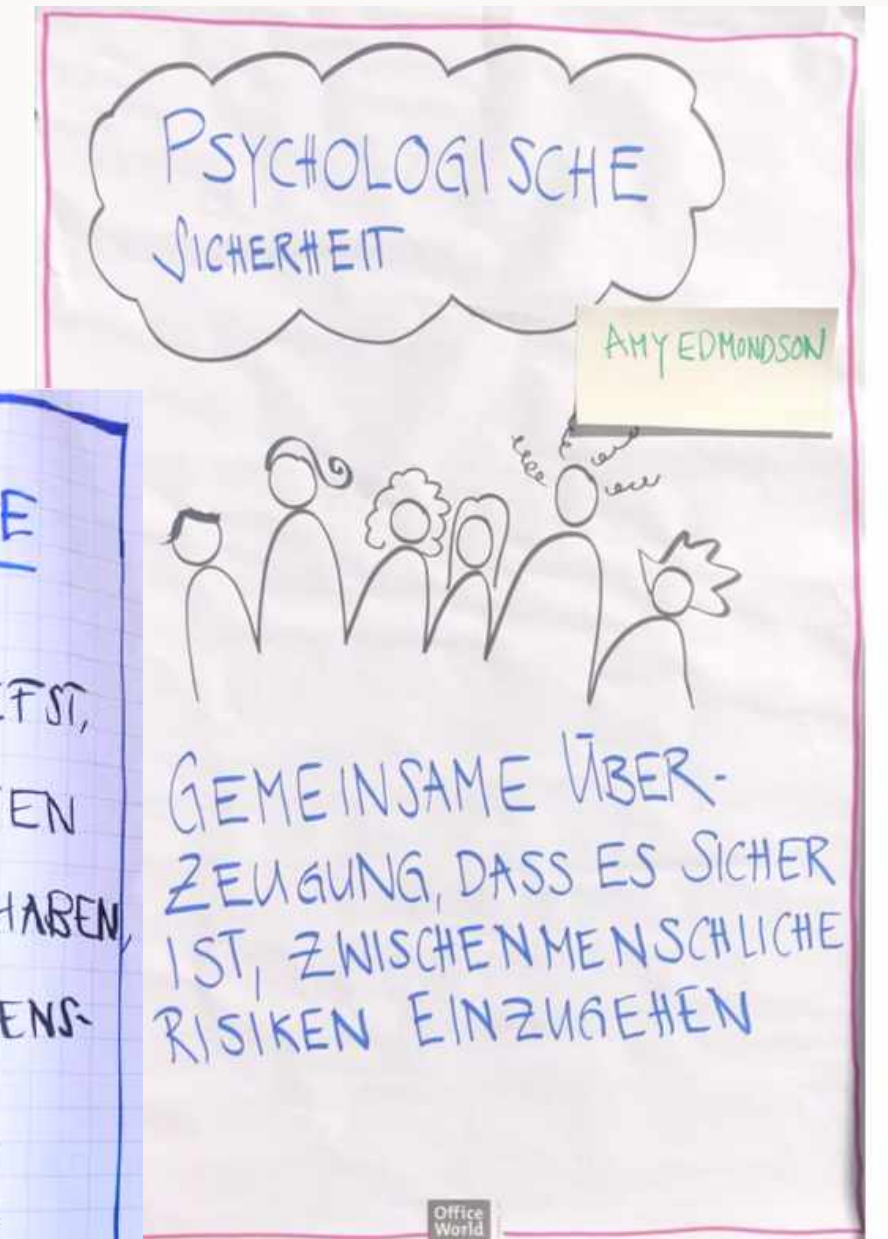 PSYCHOLOGISCHE
SICHERHEIT
AMY EDMONDSON
GEMEINSAME ÜBER-
ZEUGUNG, DASS ES SICHER
IST, ZWISCHENMENSCHLICHE
RISIKEN EINZUGEHEN
Office
World
E
EN
HABEN,
ENS-